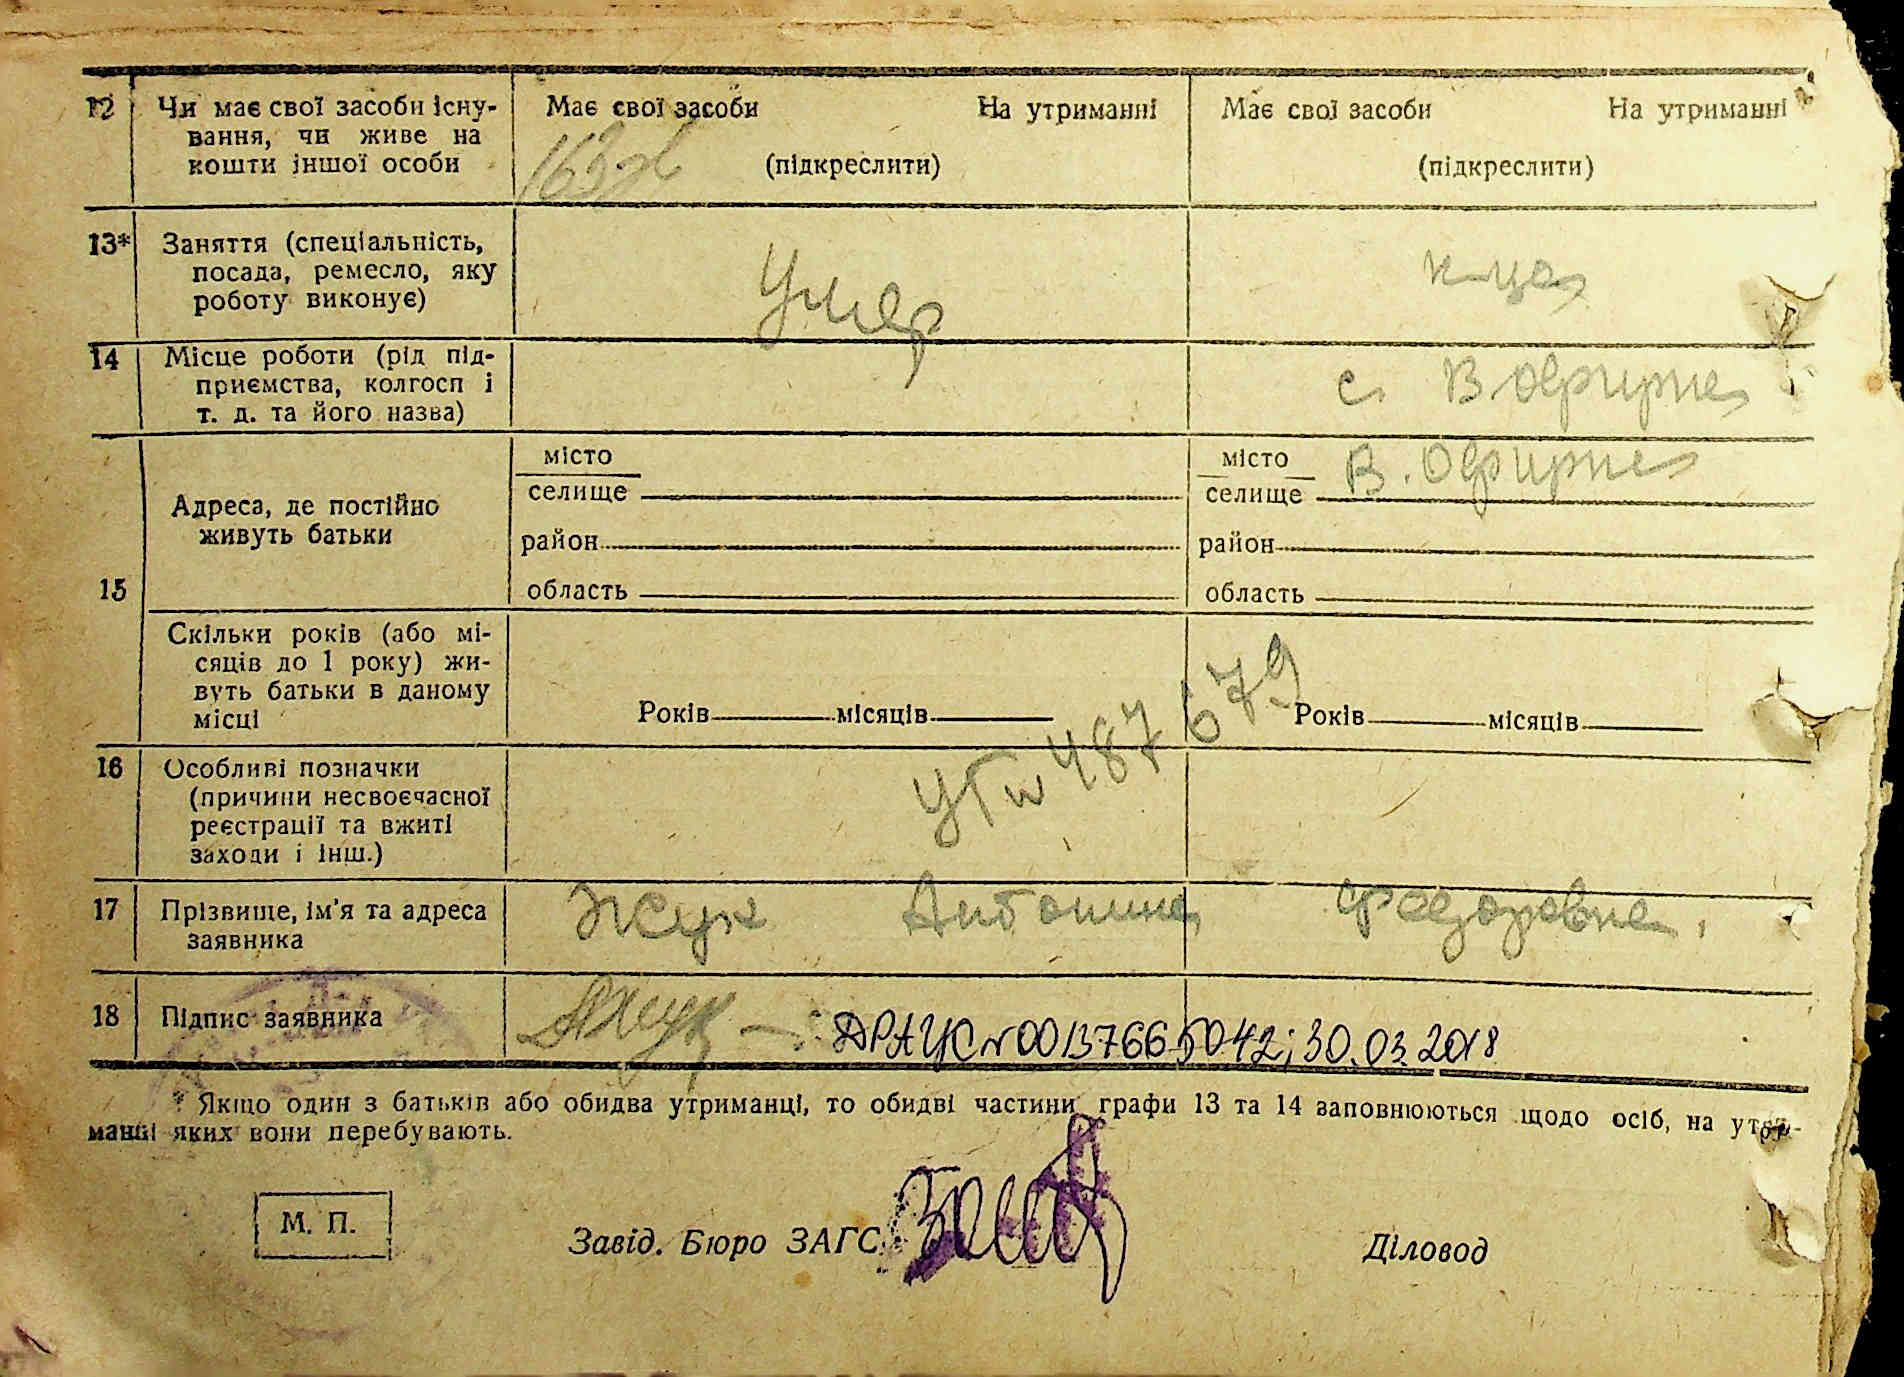 12 Чи має свої засоби існу-
вання, чи живе на
кошти іншої особи
Має свої засоби На утриманні
(підкреслити)
Має свої засоби На утриманні
(підкреслити)
13* Заняття (спеціальність,
посада, ремесло, яку
роботу виконує)
Умер
к-ца
14 Місце роботи (рід під-
приємства, колгосп і
т. д. та його назва)
с. В Офирна
15
Адреса, де постійно
живуть батьки
місто
селище
район
область
місто
селище В. Офирна
район
область
Скільки років (або мі-
сяців до 1 року) жи-
вуть батьки в даному
місці
Років місяців
Років місяців
487679
16 Особливі позначки
(причини несвоєчасної
реєстрації та вжиті
заходи і інш.)
17 Прізвище, ім'я та адреса
заявника
Жук Антонина Феодоровна.
18 Підпис заявника
АЖук
ДРАЦС № 00137665042; 30.03.2018
* Якщо один з батьків або обидва утриманці, то обидві частини графи 13 та 14 заповнюються щодо осіб, на утри-
манні яких вони перебувають.
М. П.
Завід. Бюро ЗАГС
Діловод